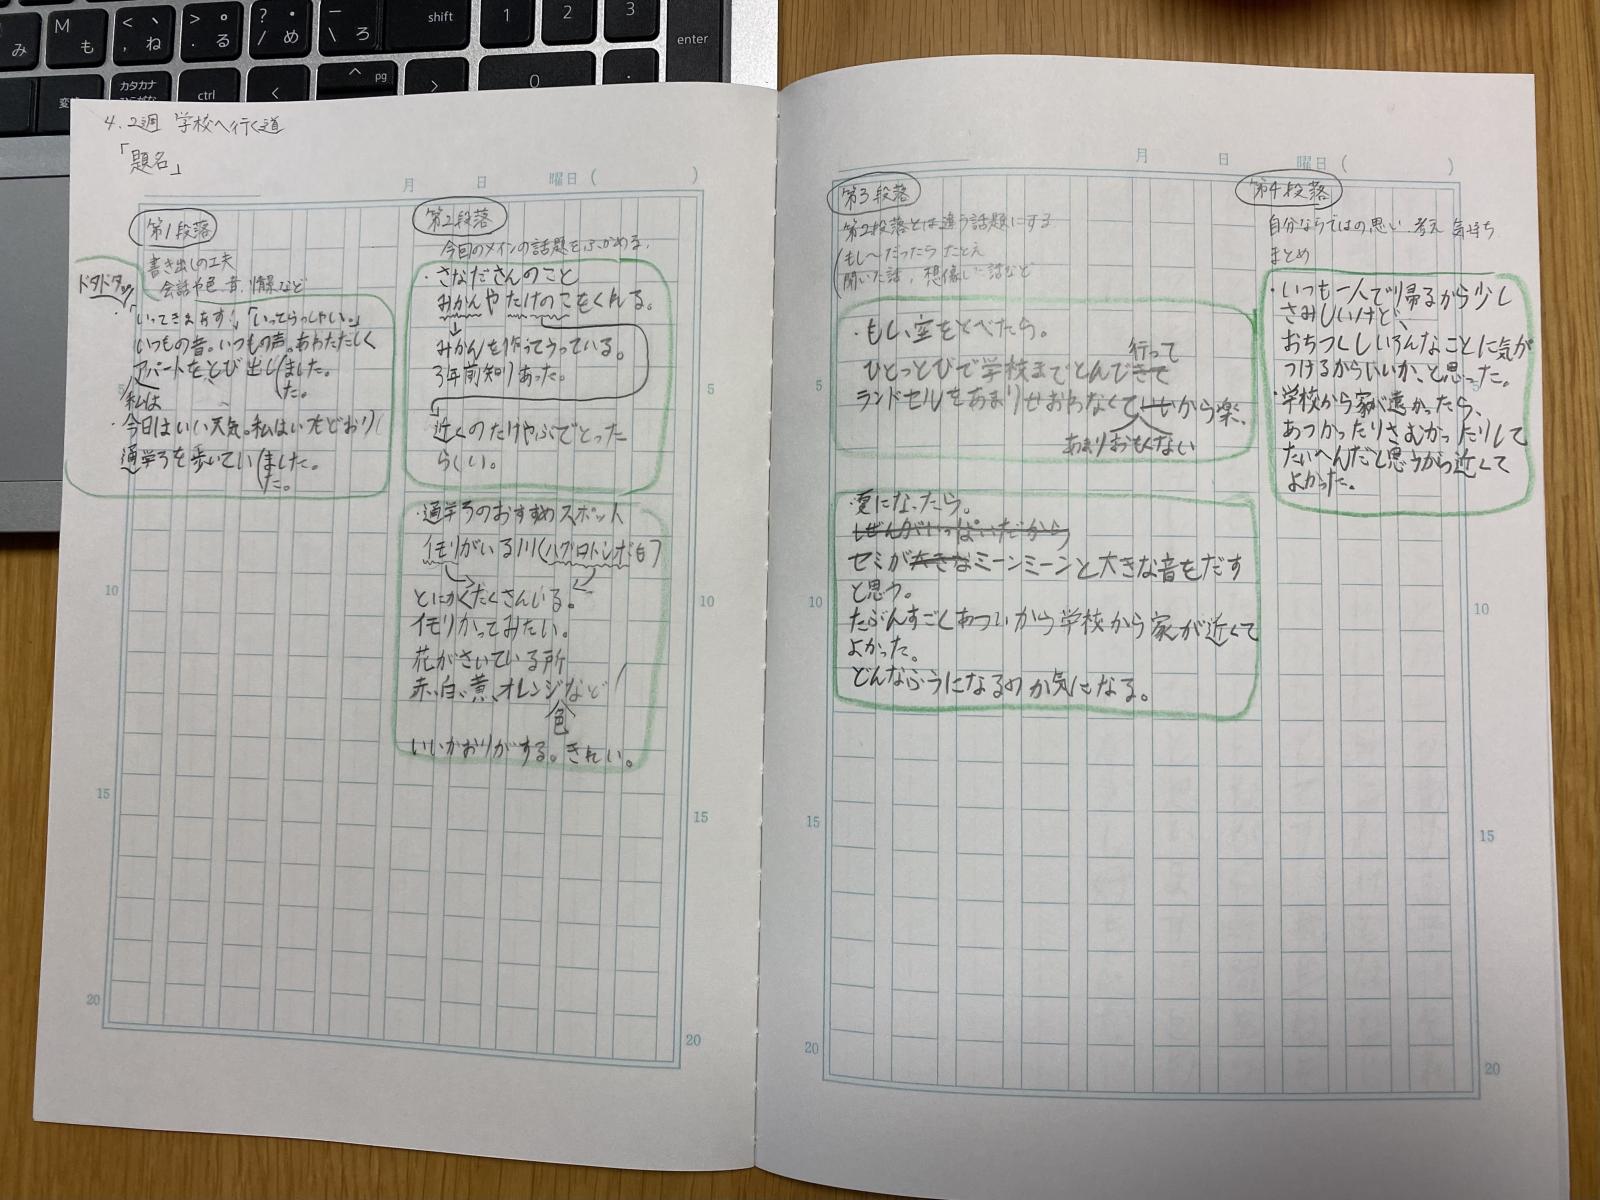 4.2週 学校へ行く道
「題名」
月 日 曜日( )
第1段落
書き出しの工夫
会話や色、音、情景など
ドタドタッ
・「いってきまあす!」「いってらっしゃい。」
いつもの音。いつもの声。あわただしく
アパートをとび出しました。
た。
私は
・今日はいい天気。私はいつもどおり
通学ろを歩いていました。
た。
第2段落
今回のメインの話題をふかめる。
・さなださんのこと
みかんやたけのこをくれる。
みかんを作ってうっている。
3年前知りあった。
近くのたけやぶでとった
らしい。
・通学ろのおすすめスポット
イモリがいる川(ハグロトンボも)
とにかくたくさんいる。
イモリかってみたい。
花がさいている所
赤、白、黄、オレンジなど
色
いいかおりがする。きれい。
5
10
15
20
5
10
15
20
月 日 曜日( )
第3段落
第2段落とは違う話題にする
もし〜だったら たとえ
聞いた話、想像した話など
・もし空をとべたら。
行って
ひとっとびで学校までとんできて
ランドセルをあまりせおわなくていいから楽、
あまりおもくない
・夏になったら。
しぜんがいっぱいだから
セミが大きなミーンミーンと大きな音をだす
と思う。
たぶんすごくあついから学校から家が近くて
よかった。
どんなふうになるのか気になる。
第4段落
自分ならではの思い、考え 気持ち
まとめ
・いつも一人で帰るから少し
さみしいけど、
おちつくしいろんなことに気が
つけるからいいか、と思った。
・学校から家が遠かったら、
あつかったりさむかったりして
たいへんだと思うから近くて
よかった。
5
10
15
20
5
10
15
20
M
も
み
<
、
,
ね
>
。
.
る
?
・
/
め
\
ろ
shift
1
2
3
enter
変
カタカナ
ctrl
<
^
pg
>
0
.